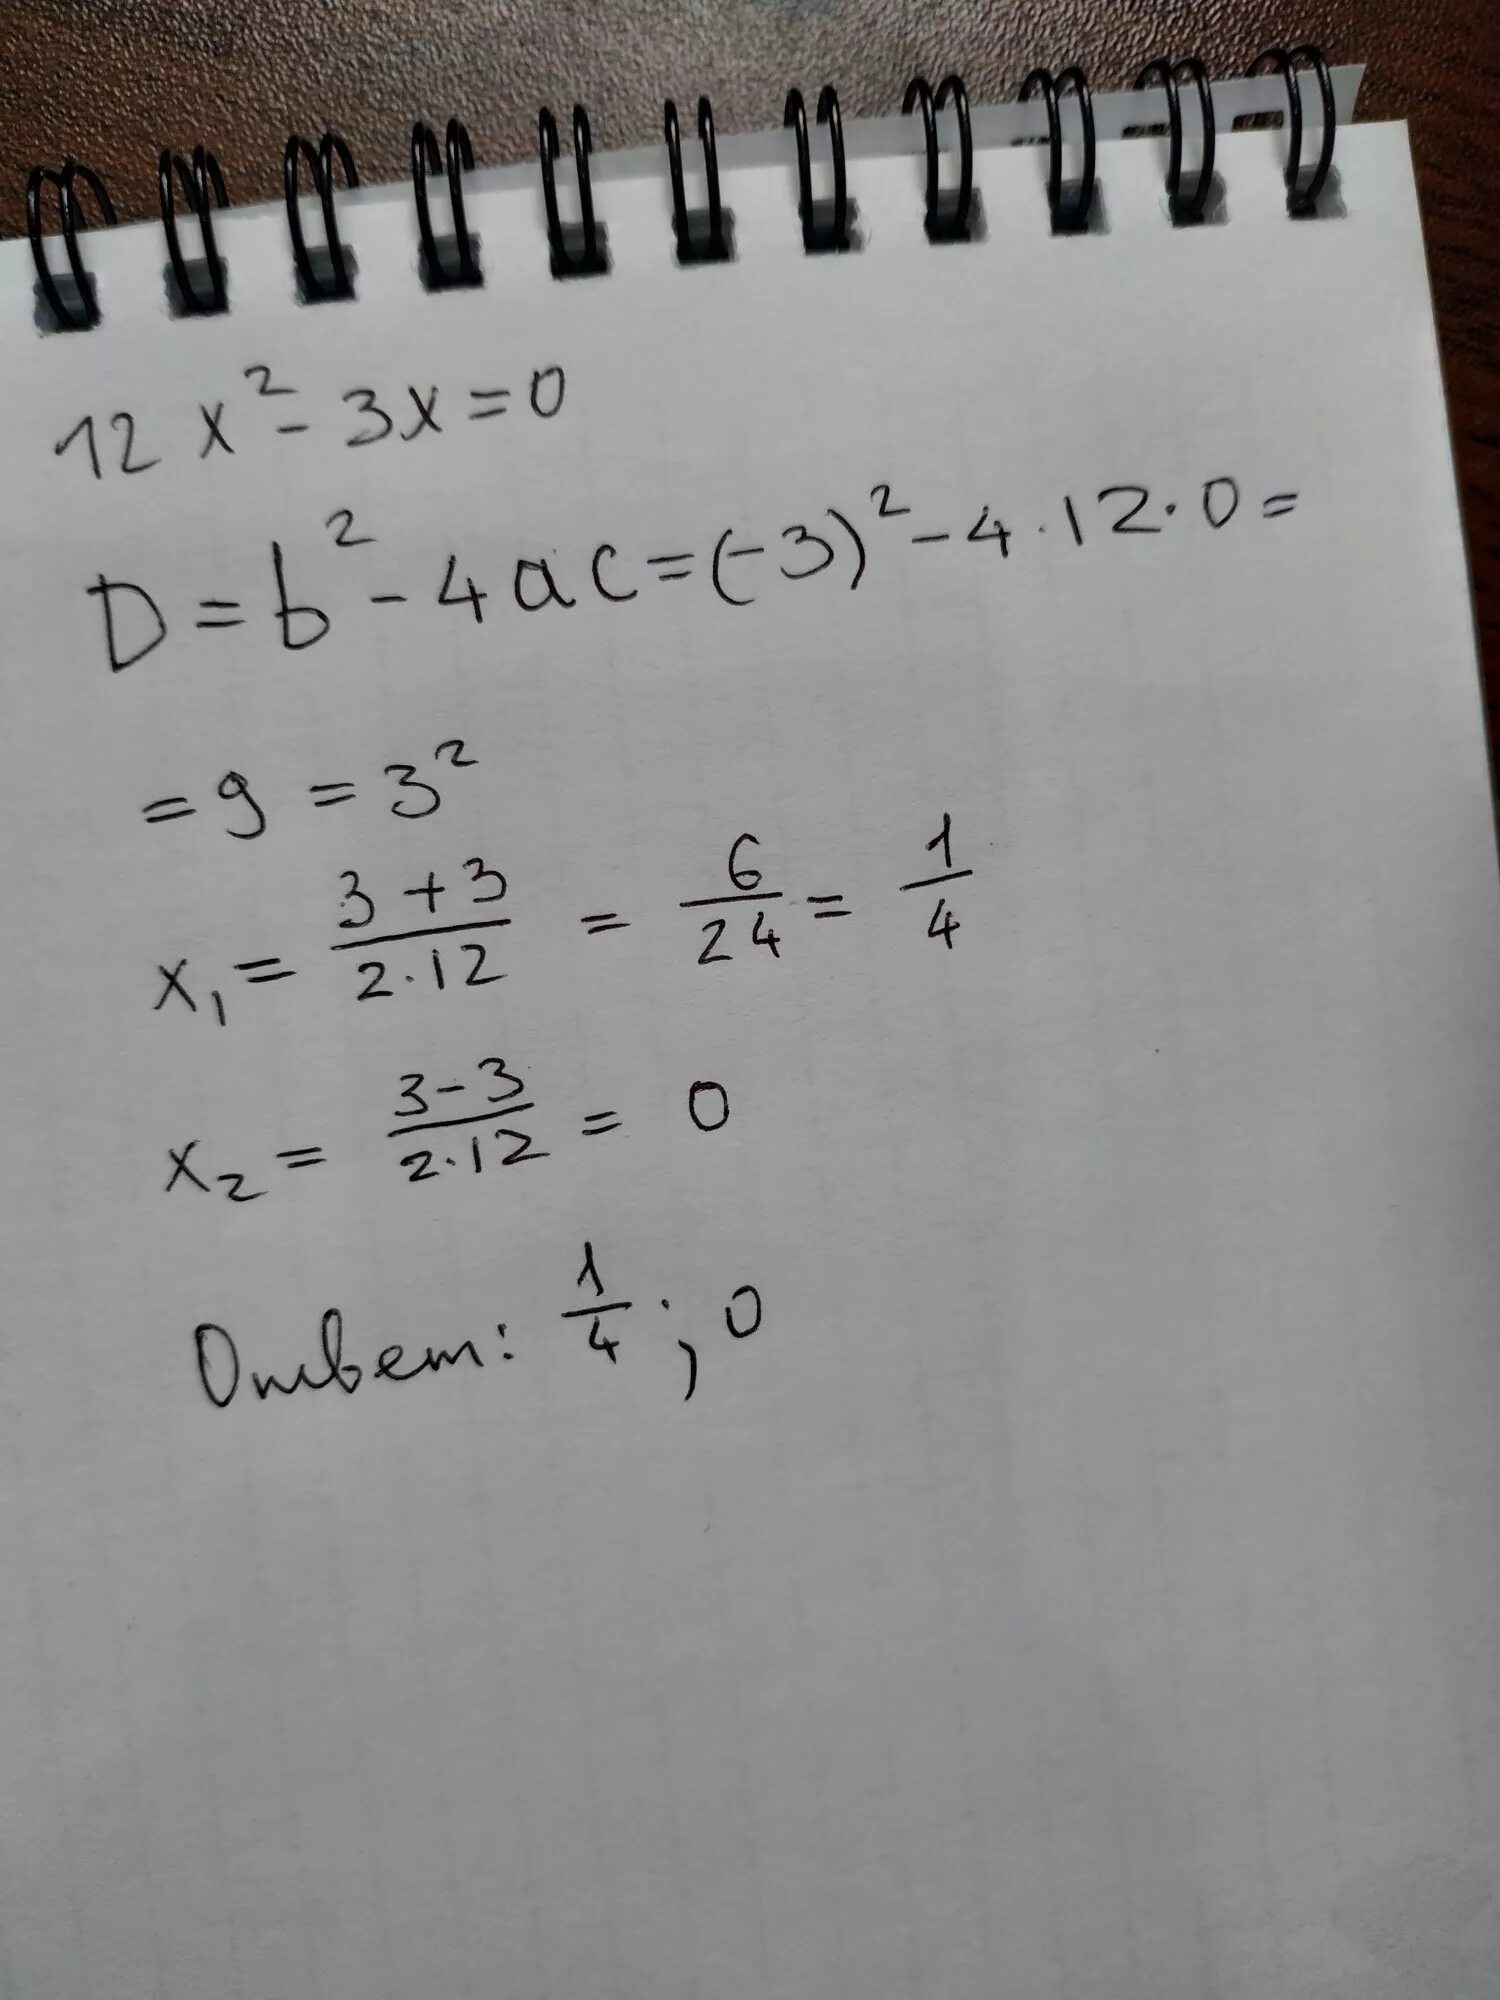 12x² - 3x = 0
D = b² - 4ac = (-3)² - 4 · 12 · 0 =
= 9 = 3²
x₁ = (3 + 3)/(2 · 12) = 6/24 = 1/4
x₂ = (3 - 3)/(2 · 12) = 0
Ответ: 1/4 ; 0